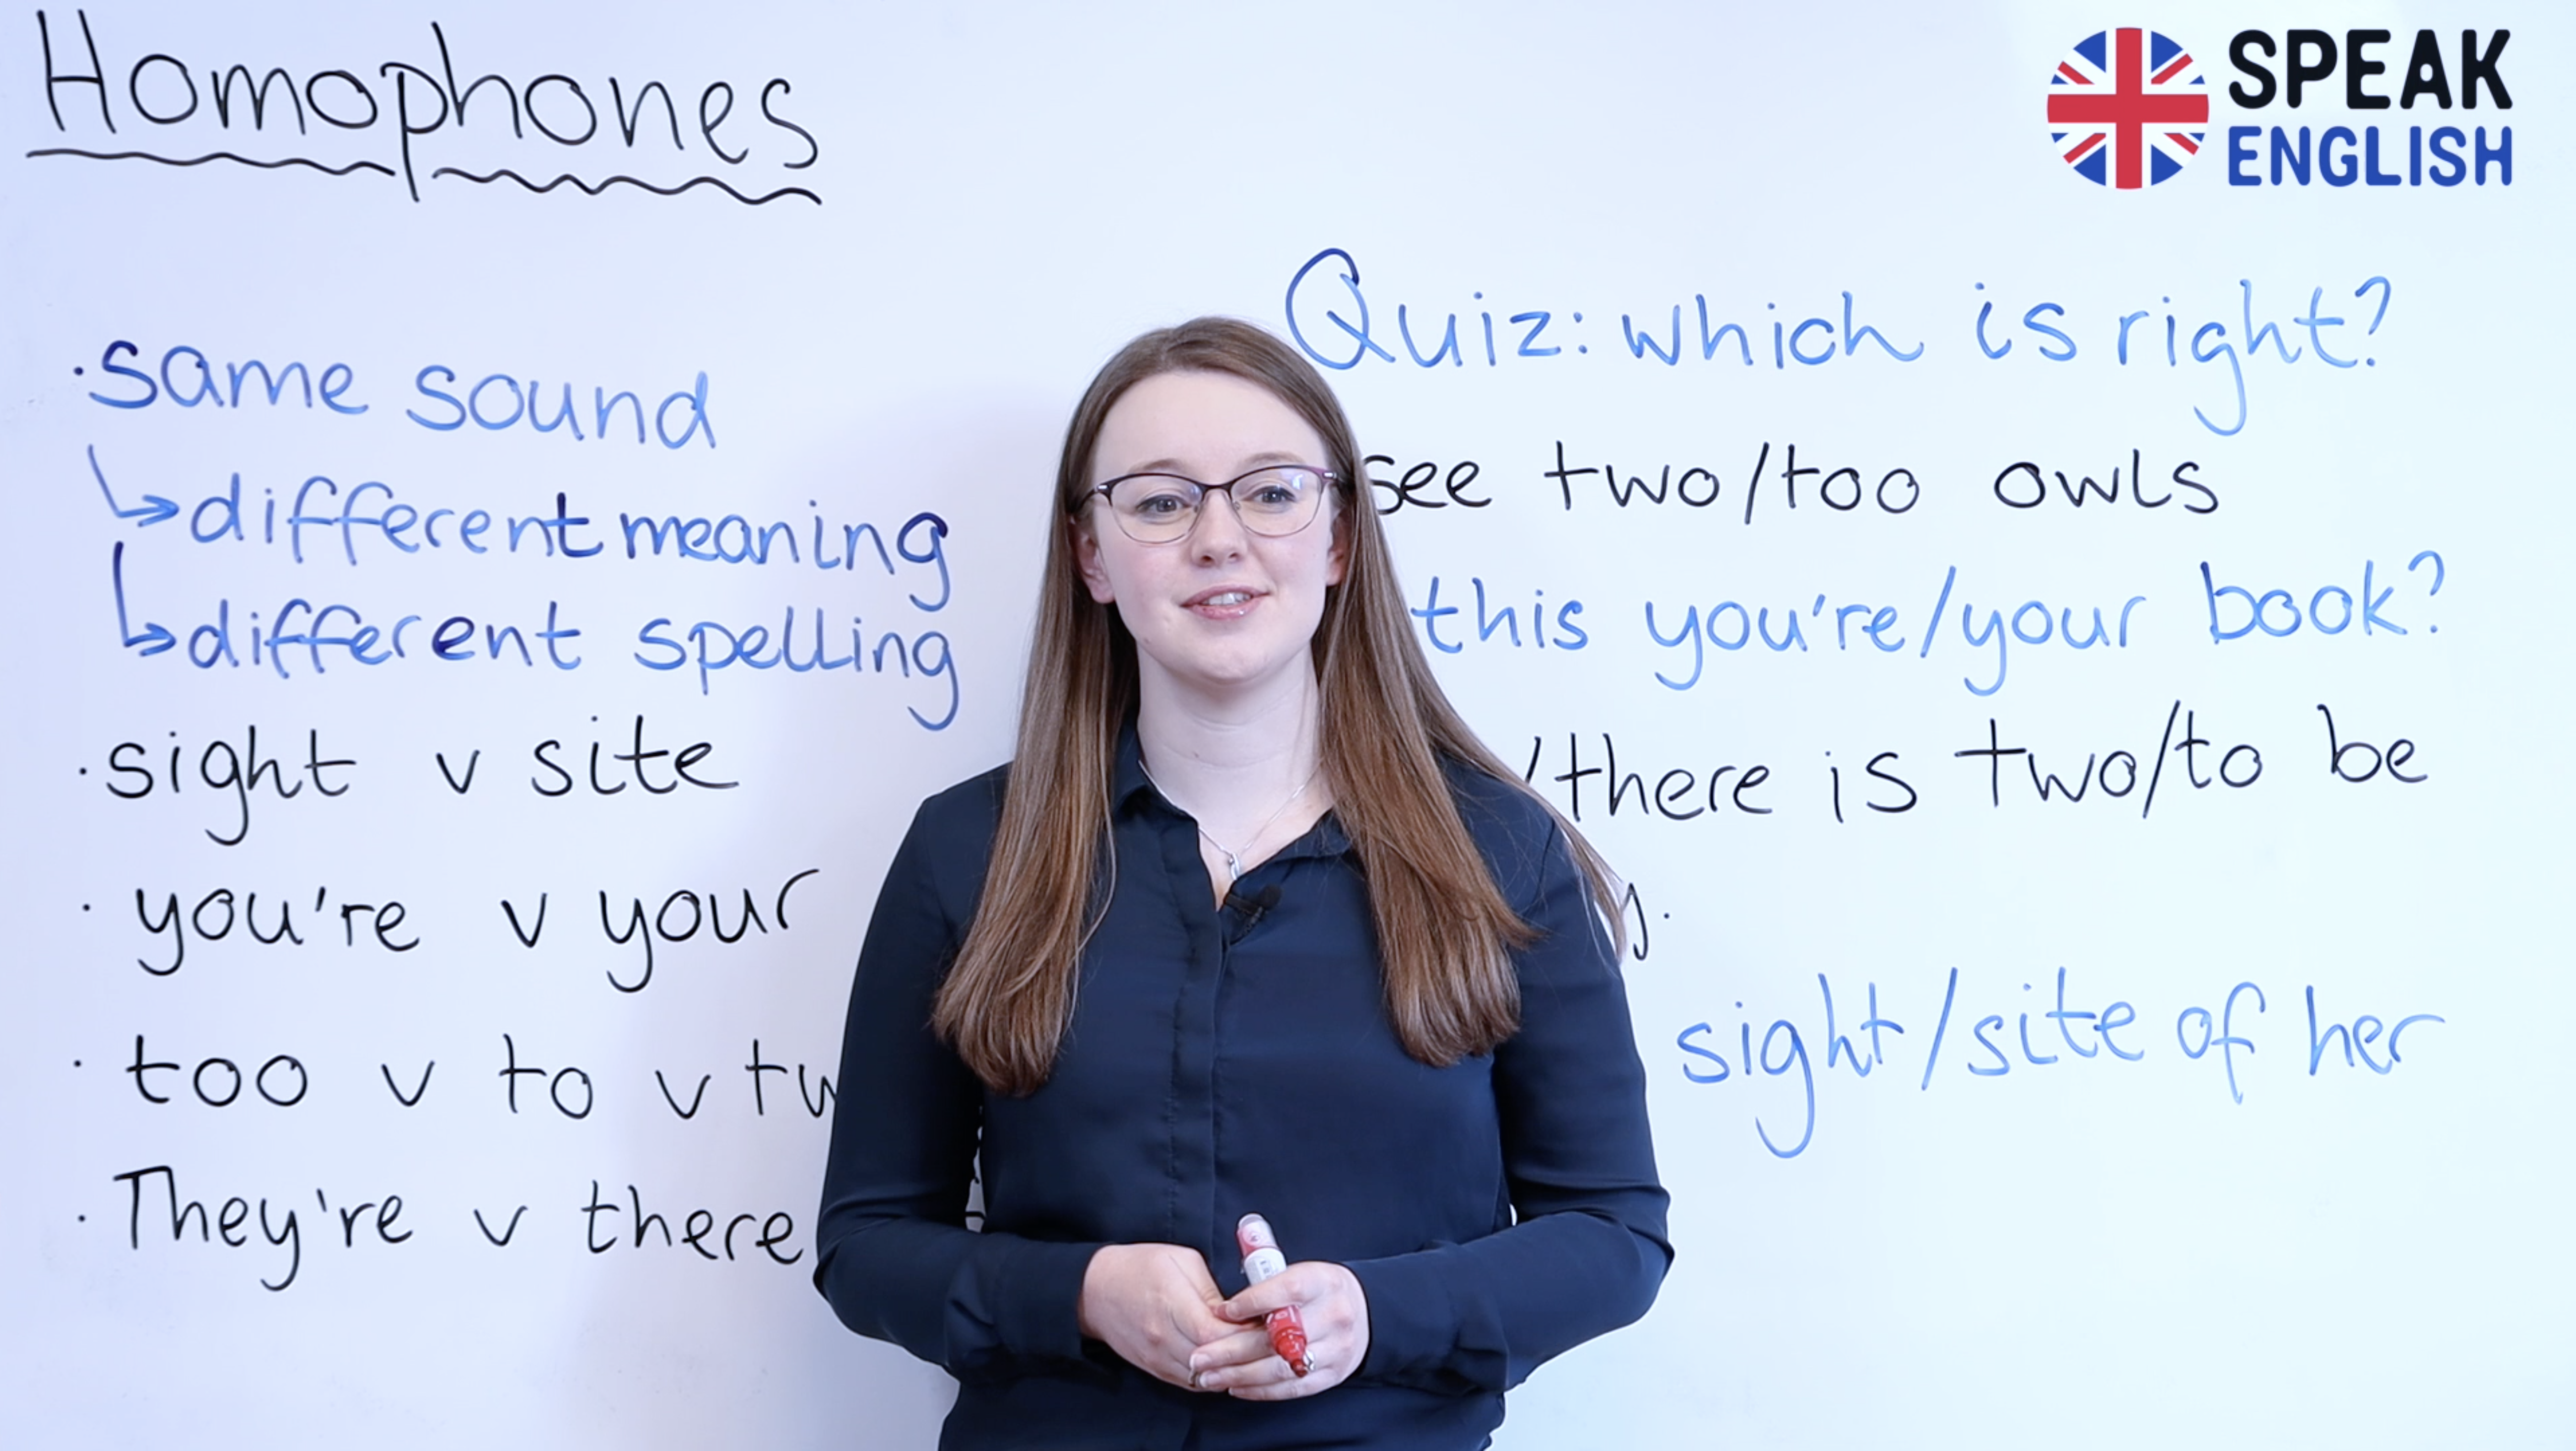 Homophones
SPEAK
ENGLISH
· same sound
↳ different meaning
↳ different spelling
· sight v site
· you're v your
· too v to v
· They're v there
Quiz: which is right?
see two/too owls
this you're/your book?
/there is two/to be
sight/site of her